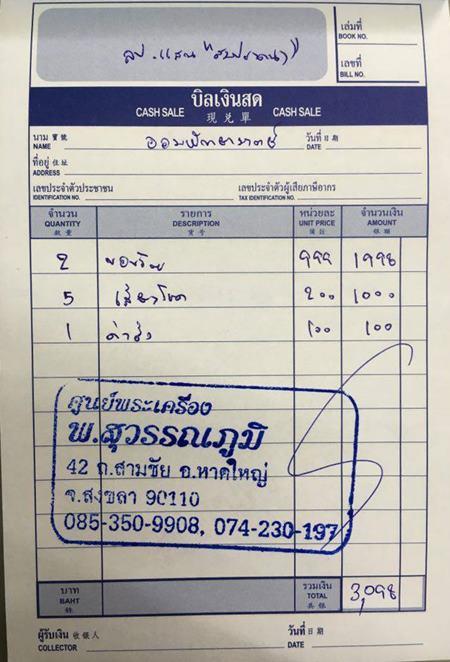 เล่มที่
BOOK NO.
เลขที่
BILL NO.
บิลเงินสด
CASH SALE 現兑單 CASH SALE
นาม 寶號
NAME
วันที่ 日期
DATE
ที่อยู่ 住址
ADDRESS
เลขประจำตัวประชาชน
IDENTIFICATION NO.
เลขประจำตัวผู้เสียภาษีอากร
TAX IDENTIFICATION NO.
จำนวน รายการ หน่วยละ จำนวนเงิน
QUANTITY DESCRIPTION UNIT PRICE AMOUNT
數量 貨号 備註 銀額
2 ๙๙๙ 1998
5 ๒๐๐ 1๐๐๐
1 ค่าส่ง ๖๐ 1๐๐
ศูนย์พระเครื่อง
พ.สุวรรณภูมิ
42 ถ.สามชัย อ.หาดใหญ่
จ.สงขลา 90110
085-350-9908, 074-230-197
บาท
BAHT
銖
รวมเงิน
TOTAL
共銀
3,098
ผู้รับเงิน 收銀人
COLLECTOR
วันที่ 日期
DATE